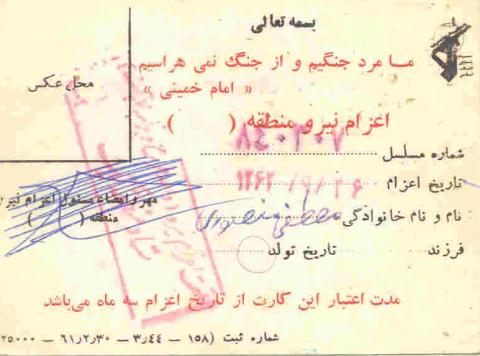 بسمه تعالی
ما مرد جنگیم و از جنگ نمی هراسیم
« امام خمینی »
محل عکس
اعزام نیرو منطقه ( )
شماره مسلسل ۸۴۰۲۰۷
تاریخ اعزام ۱۳۶۲/۹/۲۶
مهر و امضاء مسئول اعزام نیرو
منطقه ( )
نام و نام خانوادگی مصطفی منصوری
فرزند تاریخ تولد
مدت اعتبار این کارت از تاریخ اعزام سه ماه می‌باشد
شماره ثبت (۱۵۸ – ۳٫۴۴ – ۶۱٫۲٫۳۰ – ۲۵۰۰۰